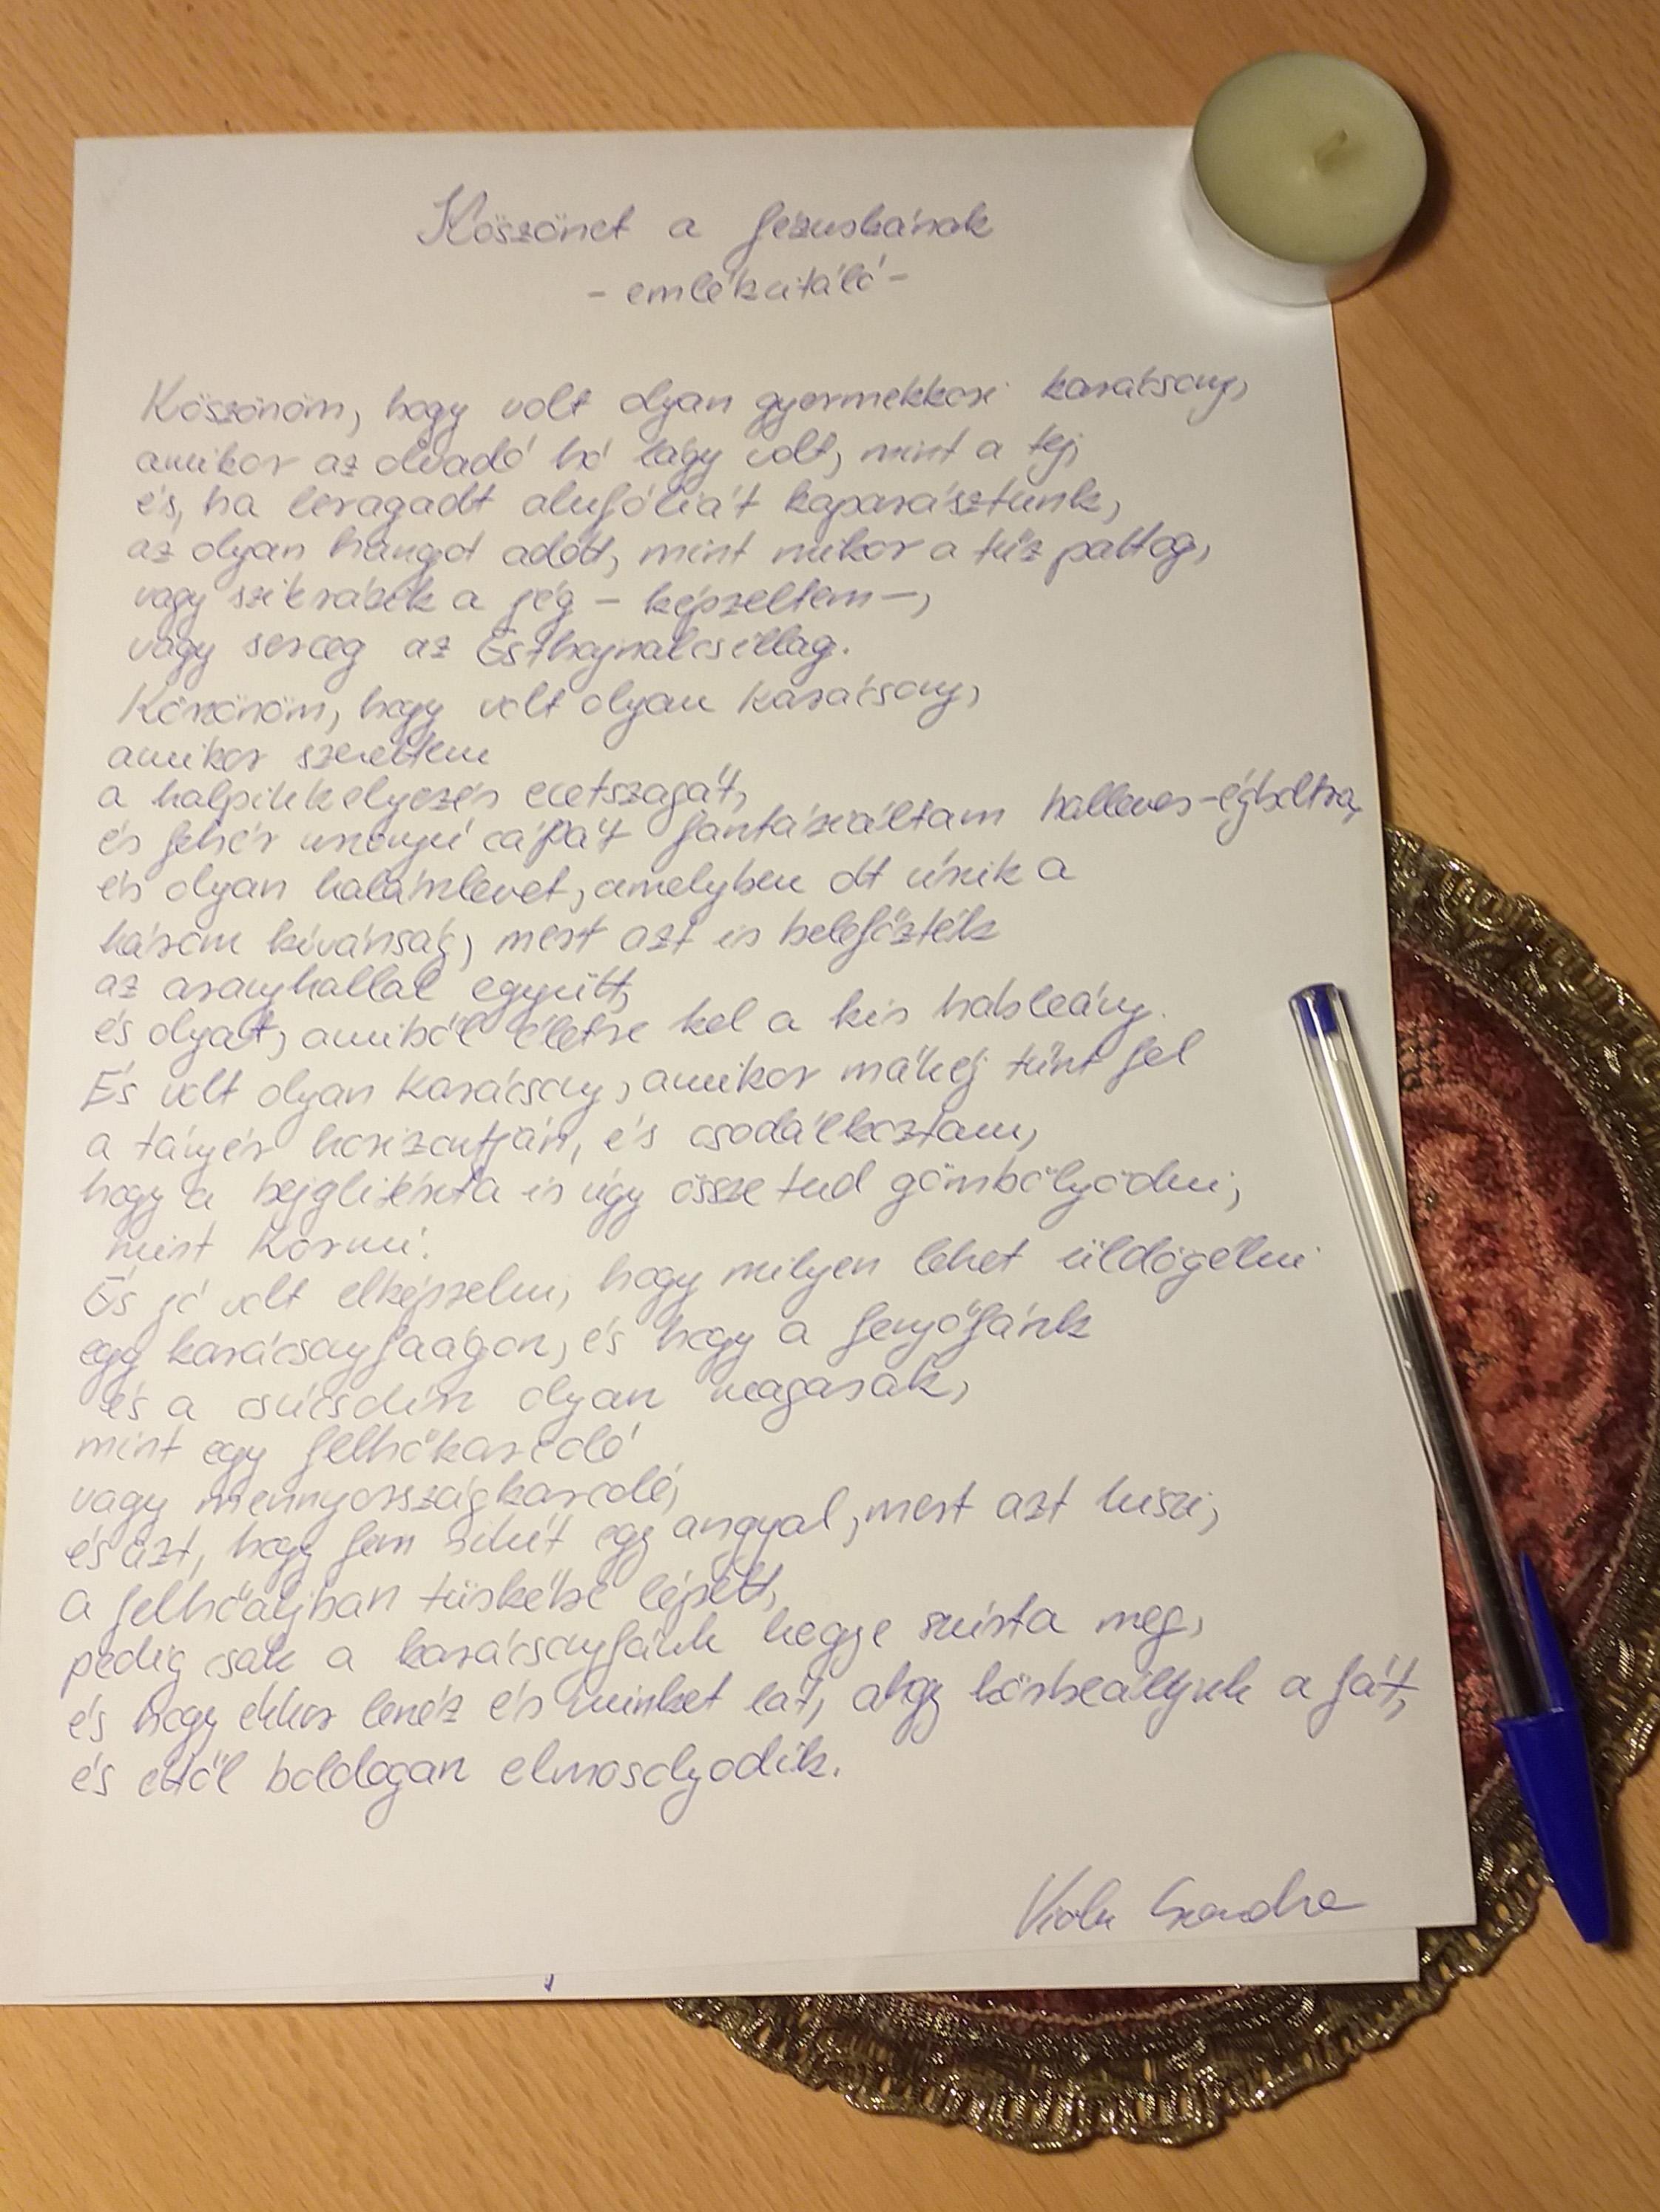 Köszönet a Jézuskának
- emlékutáló -
Köszönöm, hogy volt olyan gyermekkori karácsony,
amikor az olvadó hó lágy volt, mint a tej,
és, ha leragadt alufóliát kaparásztunk,
az olyan hangot adott, mint mikor a tűz pattog,
vagy szikrázik a jég – képzeltem –,
vagy serceg az Esthajnalcsillag.
Köszönöm, hogy volt olyan karácsony,
amikor szerettem
a halpikkelyezés ecetszagát,
és fehér uszonyú cápát fantáziáltam halleves-égboltra,
és olyan halászlevet, amelyben ott úszik a
három kívánság, mert azt is belefőzték
az aranyhallal együtt,
és olyat, amiből életre kel a kis hableány.
És volt olyan karácsony, amikor mákéj tűnt fel
a tányér horizontján, és csodálkoztam,
hogy a bejglitészta is úgy össze tud gömbölyödni,
mint Kormi.
És jó volt elképzelni, hogy milyen lehet üldögélni
egy karácsonyfaágon, és hogy a fenyőfánk
és a csúcsdísz olyan magasak,
mint egy felhőkarcoló
vagy mennyországkarcoló,
és azt, hogy fenn sikít egy angyal, mert azt hiszi,
a felhőaljban tüskébe lépett,
pedig csak a karácsonyfánk hegye szúrta meg,
és hogy ekkor lenéz és minket lát, ahogy körbeálljuk a fát,
és ettől boldogan elmosolyodik.
Viola Szandra